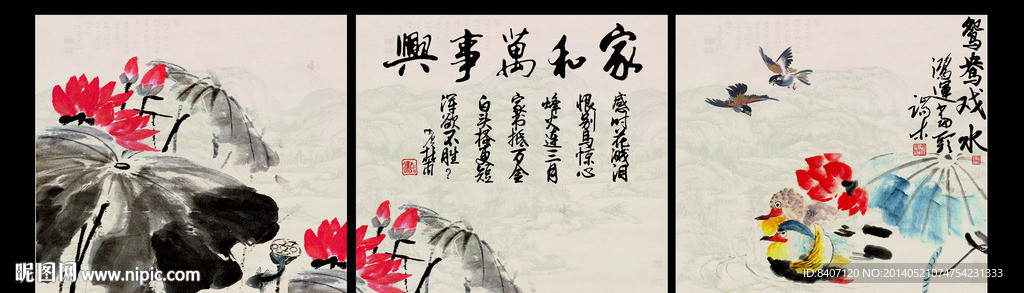 家和萬事興
感时花溅泪
恨别鸟惊心
烽火连三月
家书抵万金
白头搔更短
浑欲不胜？
鸳鸯戏水
鸿运当头
昵图网 www.nipic.com
ID:8407120 NO:20140521074754231333